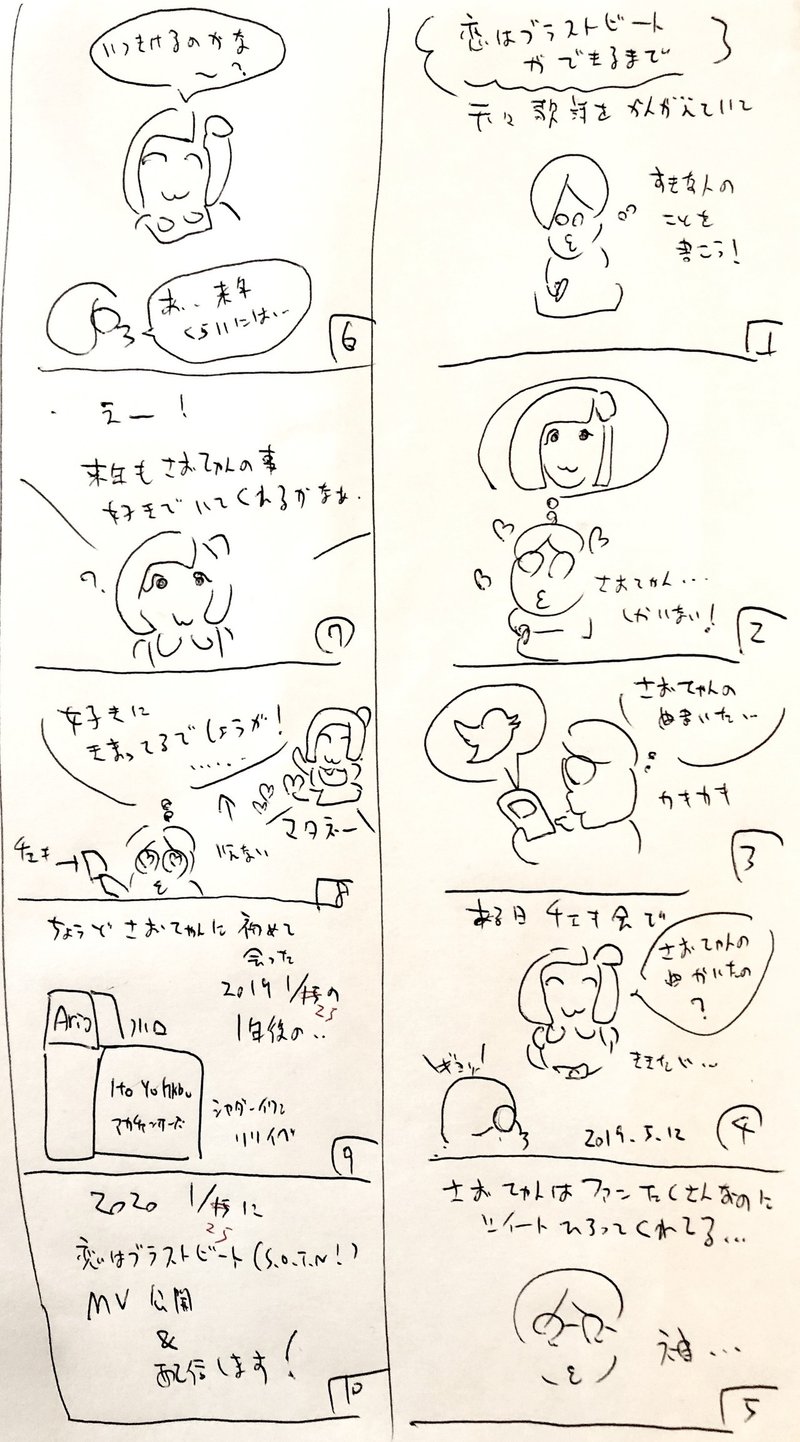 恋はブラストビート
ができるまで
歌詞をかんがえていて
すきな人の
ことを
書こう!
1
さおてゃん...
しかいない!
2
さおてゃんの
かきかき
3
ある日 チェキ会で
さおてゃんの
かいたの
?
2019.5.12
4
さおてゃんはファンたくさんなのに
ツイートひろってくれてる...
神...
5
いつきけるのかな
〜?
あ、、来年
くらいには...
6
えー!
来年もさおてゃんの事
好きでいてくれるかなぁ.
?
7
好きに
きまってるでしょうが!
......
マタネー
チェキ→
いえない
8
ちょうどさおてゃんに初めて
会った
2019 1/25の
1年後の..
Ario 川口
Ito Yokado
リリイベ
9
2020 1/25に
恋はブラストビート(S.O.T.N!)
MV 公開
&
配信します!
10